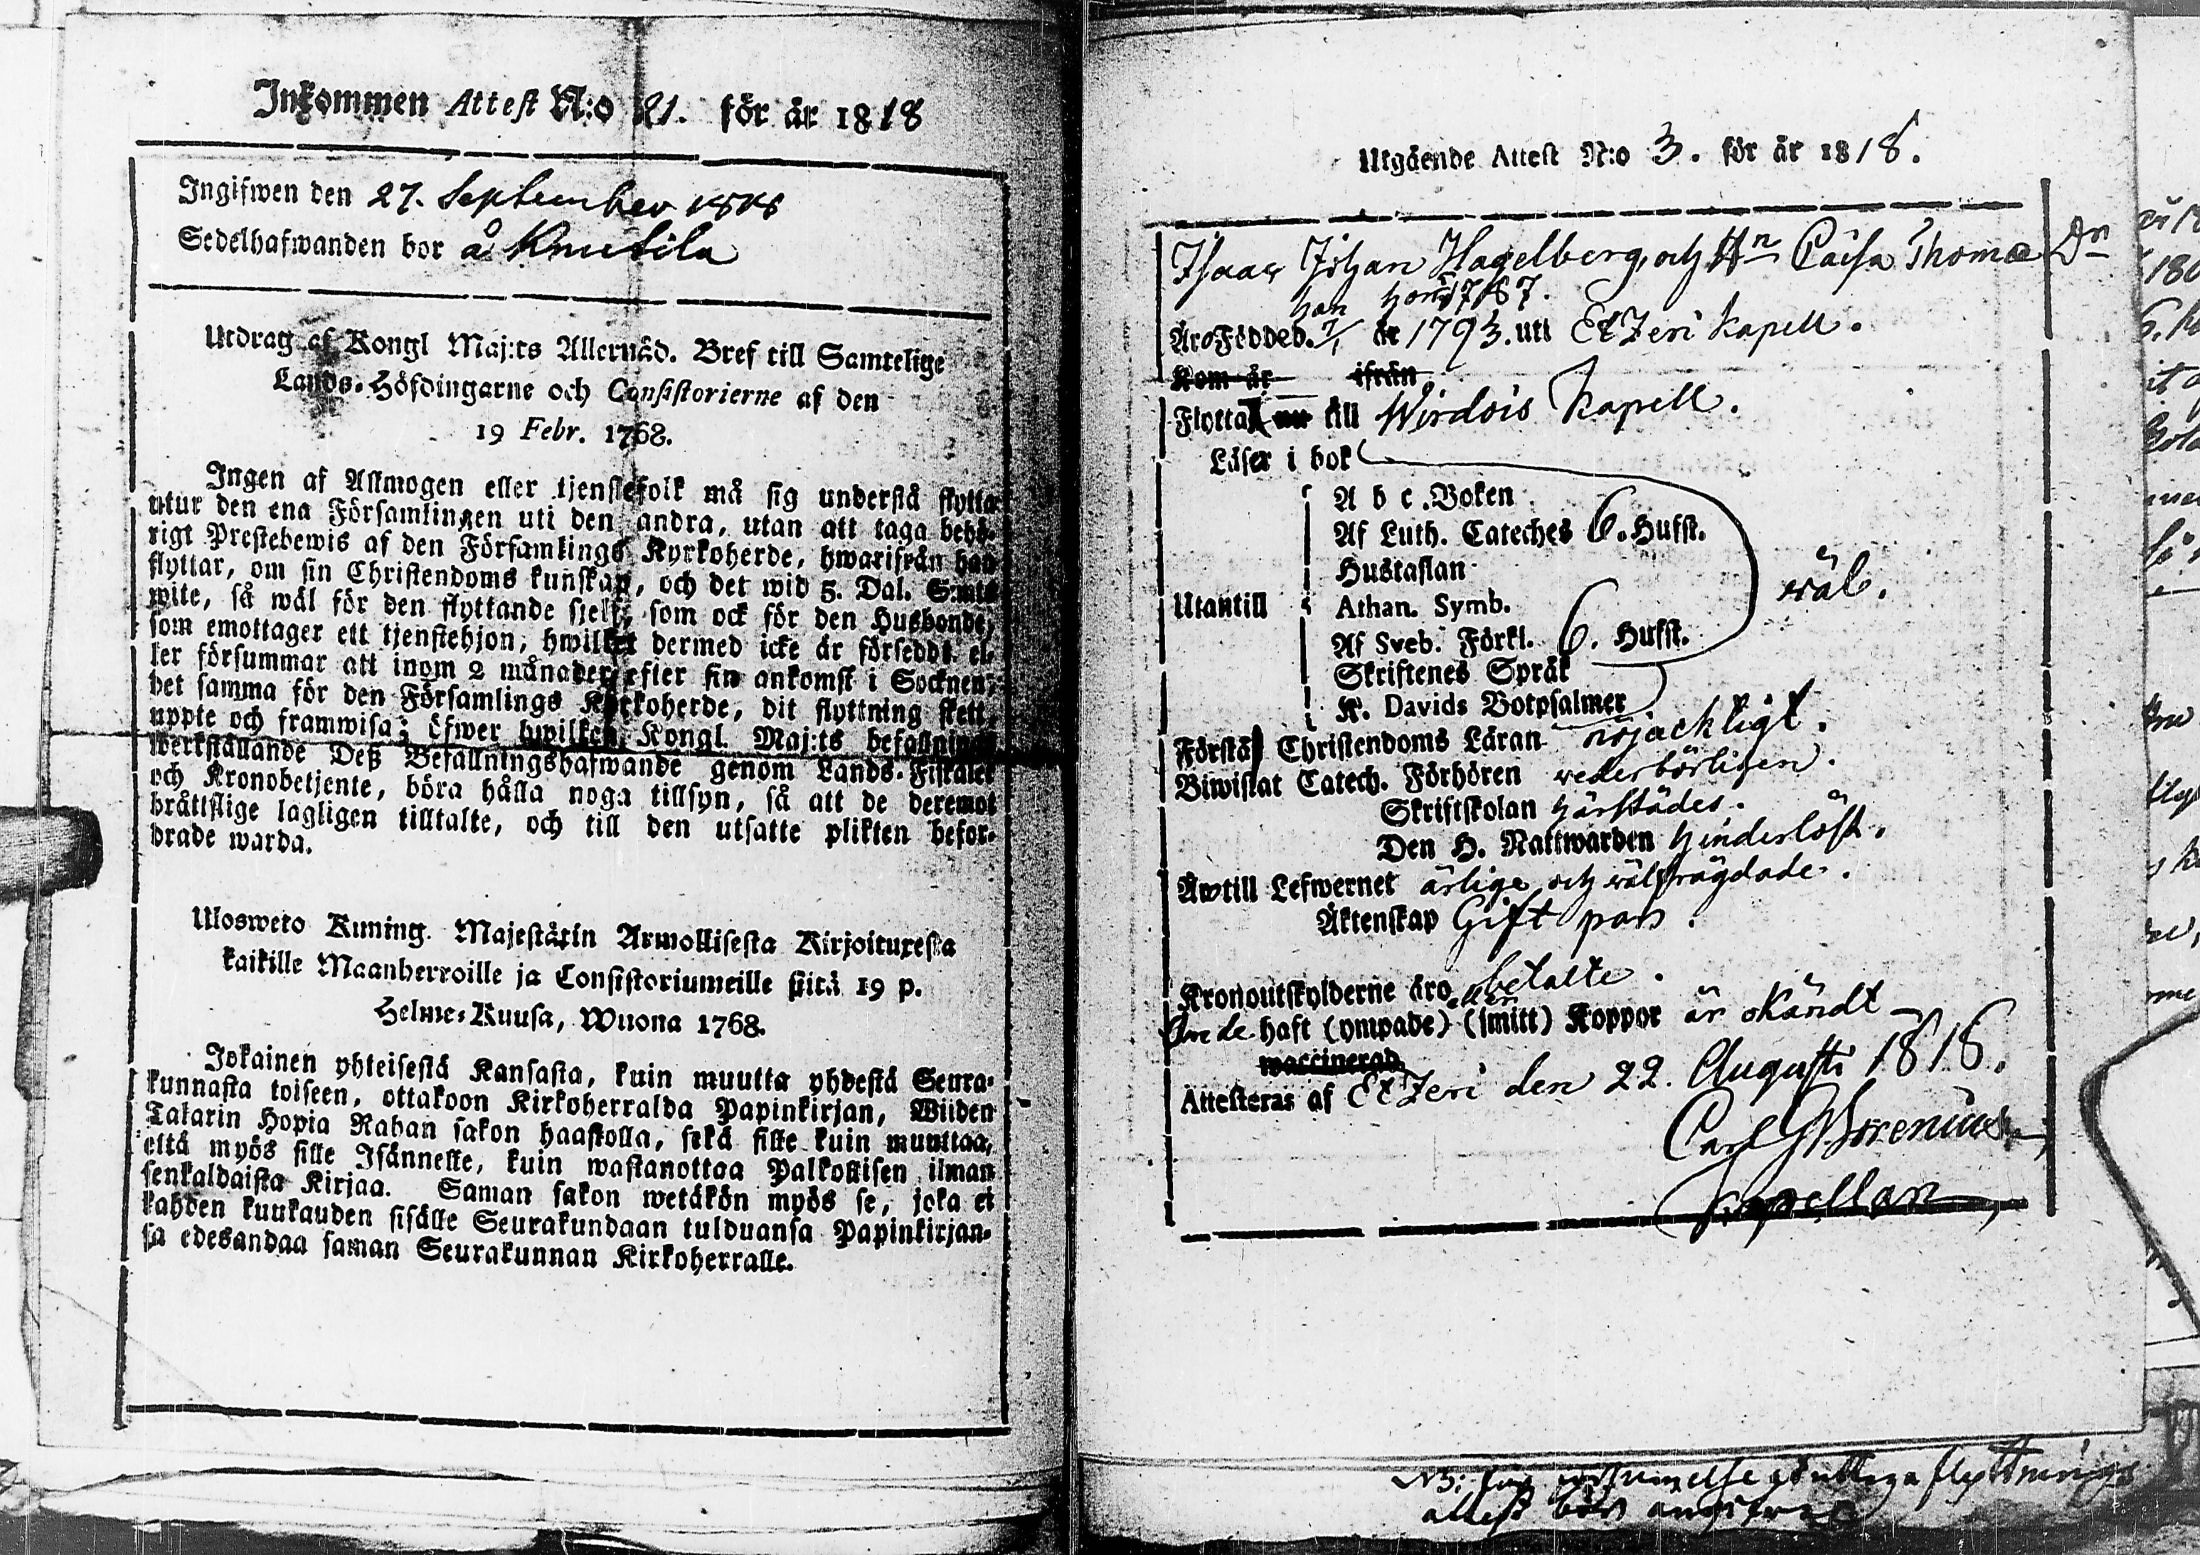 Inkommen Attest N:o 21. för år 1818
Ingifwen den 27. September 1818
Sedelhafwanden bor å Knutila
Utdrag af Kongl Maj:ts Allernåd. Bref till Samtelige
Lands-Höfdingarne och Consistorierne af den
19 Febr. 1768.
Ingen af Allmogen eller tjenstefolk må sig understå flytta
utur den ena Församlingen uti den andra, utan att taga behö-
rigt Prestebewis af den Församlings Kyrkoherde, hwarifrån han
flyttar, om sin Christendoms kunskap, och det wid 5. Dal. S:mts
wite, så wäl för den flyttande sjelf, som ock för den Husbonde,
som emottager ett tjenstehjon, hwilket dermed icke är försedt, el-
ler försummar att inom 2 månader efter sin ankomst i Socknen,
det samma för den Församlings Kyrkoherde, dit flyttning skett,
uppte och framwisa; öfwer hwilken Kongl. Maj:ts befallnings
werkställande Deß Befallningshafwande genom Lands-Fiskaler
och Kronobetjente, böra hålla noga tillsyn, så att de deremot
bråttslige lagligen tilltalte, och till den utsatte plikten befor-
drade warda.
Ulosweto Kuning. Majestätin Armollisesta Kirjoituxesta
kaikille Maanherroille ja Consistoriumeille siitä 19 p.
Helme-Kuusa, Wuona 1768.
Jokainen yhteisestä Kansasta, kuin muutta yhdestä Seura-
kunnasta toiseen, ottakoon Kirkoherralda Papinkirjan, Wiiden
Talarin Hopia Rahan sakon haastolla, sekä sille kuin muuttaa,
että myös sille Isännelle, kuin wastanottaa Palkollisen ilman
senkaldaista Kirjaa. Saman sakon wetäkön myös se, joka ei
kahden kuukauden sisälle Seurakundaan tulduansa Papinkirjan-
sa edesandaa saman Seurakunnan Kirkoherralle.
Utgående Attest N:o 3. för år 1818.
Isaac Johan Hagelberg, och H:n Caisa Thomæ D:n
han hon 1787.
Äro Födde d. 7/1 år 1793. uti EtZeri kapell.
Kom år ifrån
Flytta nu till Wirdois Kapell.
Läser i bok
A b c. Boken
Af Luth. Cateches 6. Hufst.
Hustaflan
Utantill Athan. Symb. wäl.
Af Sveb. Förkl. 6. Hufst.
Skriftenes Språk
K. Davids Botpsalmer
Förstå Christendoms Läran nöjacktigt.
Biwistat Catech. Förhören wederbörligen.
Skriftskolan härstädes.
Den H. Nattwarden hinderlöst.
Äro till Lefwernet ärlige och wälfrägdade.
Äktenskap Gift par.
Kronoutskylderne äro betalte.
Om de haft (ympade) eller (smitt) Koppor är okändt
waccinerad
Attesteras af EtZeri den 22. Augusti 1818.
Carl G Brenius
Capellan
NB: flyttnings
attest bör angifwas